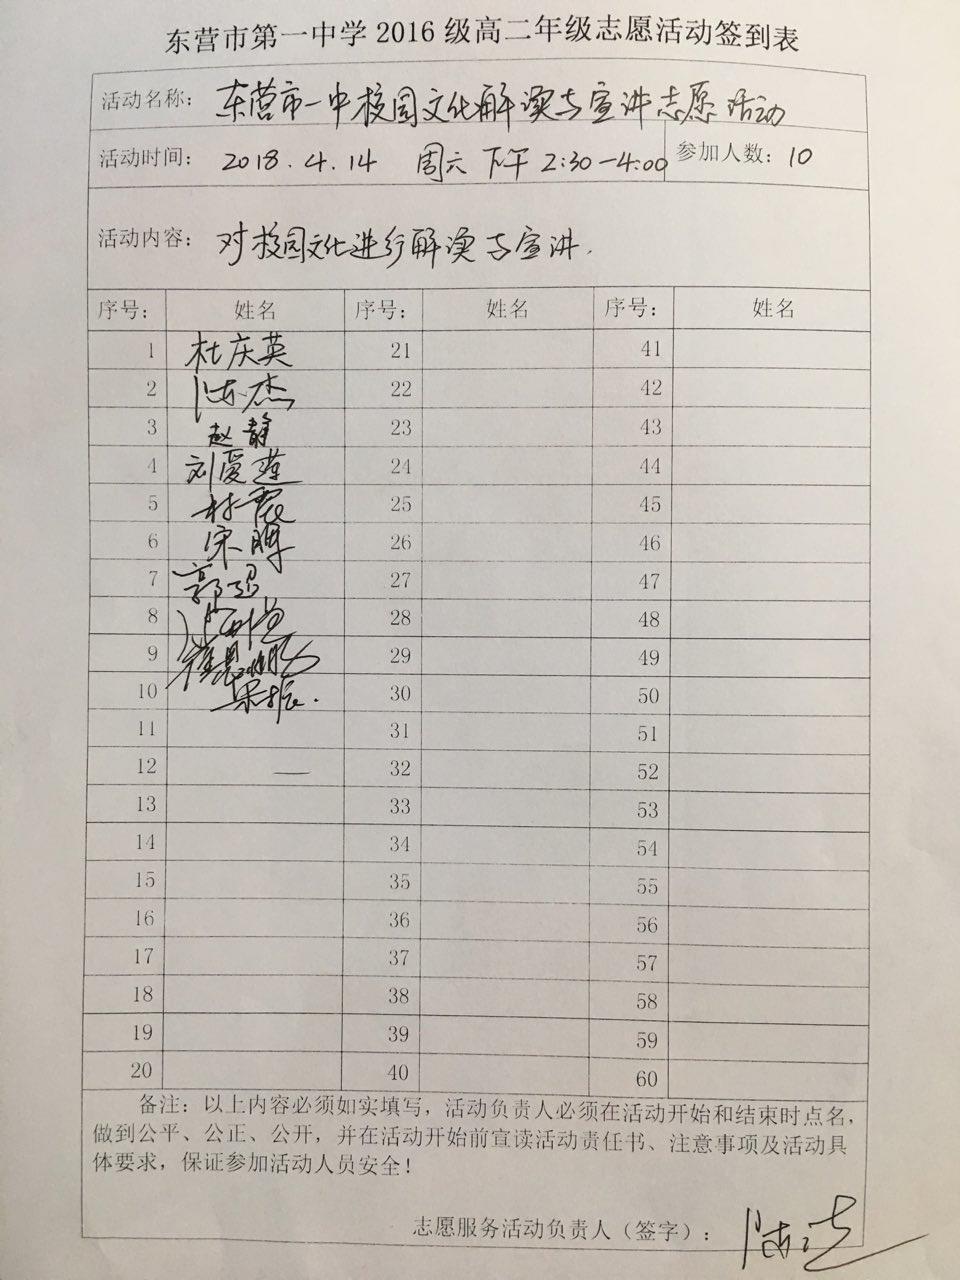 东营市第一中学2016级高二年级志愿活动签到表
活动名称: 东营市一中校园文化解读与宣讲志愿活动
活动时间: 2018.4.14 周六 下午 2:30-4:00 参加人数: 10
活动内容: 对校园文化进行解读与宣讲.
序号: 姓名 序号: 姓名 序号: 姓名
1 杜庆英 21 41
2 陈杰 22 42
3 赵静 23 43
4 刘爱莲 24 44
5 林震 25 45
6 宋鹏 26 46
7 郭超 27 47
8 28 48
9 崔晨 29 49
10 梁振. 30 50
11 31 51
12 — 32 52
13 33 53
14 34 54
15 35 55
16 36 56
17 37 57
18 38 58
19 39 59
20 40 60
备注: 以上内容必须如实填写, 活动负责人必须在活动开始和结束时点名,
做到公平、公正、公开, 并在活动开始前宣读活动责任书、注意事项及活动具
体要求, 保证参加活动人员安全!
志愿服务活动负责人(签字):